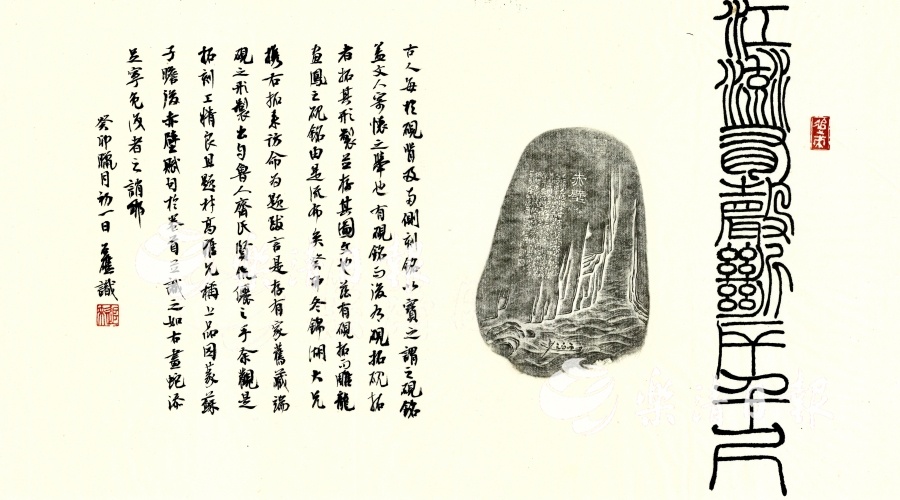 江流有聲斷岸千尺
古人每於硯背及兩側刻銘以寶之謂之硯銘
蓋文人寄懷之舉也有硯銘而後有硯拓硯拓
者拓其形製並存其圖文也茲有硯拓而雕龍
畫鳳之硯銘由是流布矣癸卯冬錦湖大兄
攜石拓來訪命為題跋言是存有家舊藏端
硯之形製出自魯人齊氏賢伉儷之手余觀是
拓刻工精良且題材高雅允稱上品因篆蘇
子瞻後赤壁賦句於卷首並識之如古畫蛇添
足寧免後者之誚耶
癸卯臘月初一日 識
樂清日報